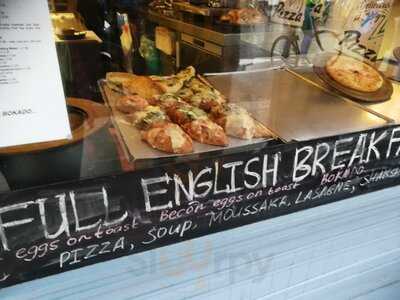 BOKADO..
Pizza
Pizza
FULL ENGLISH BREAKFA
eggs on toast Becon eggs on toast BOKADO
PIZZA, SOUP, MOUSSAKA, LASAGNE, SHAKSH